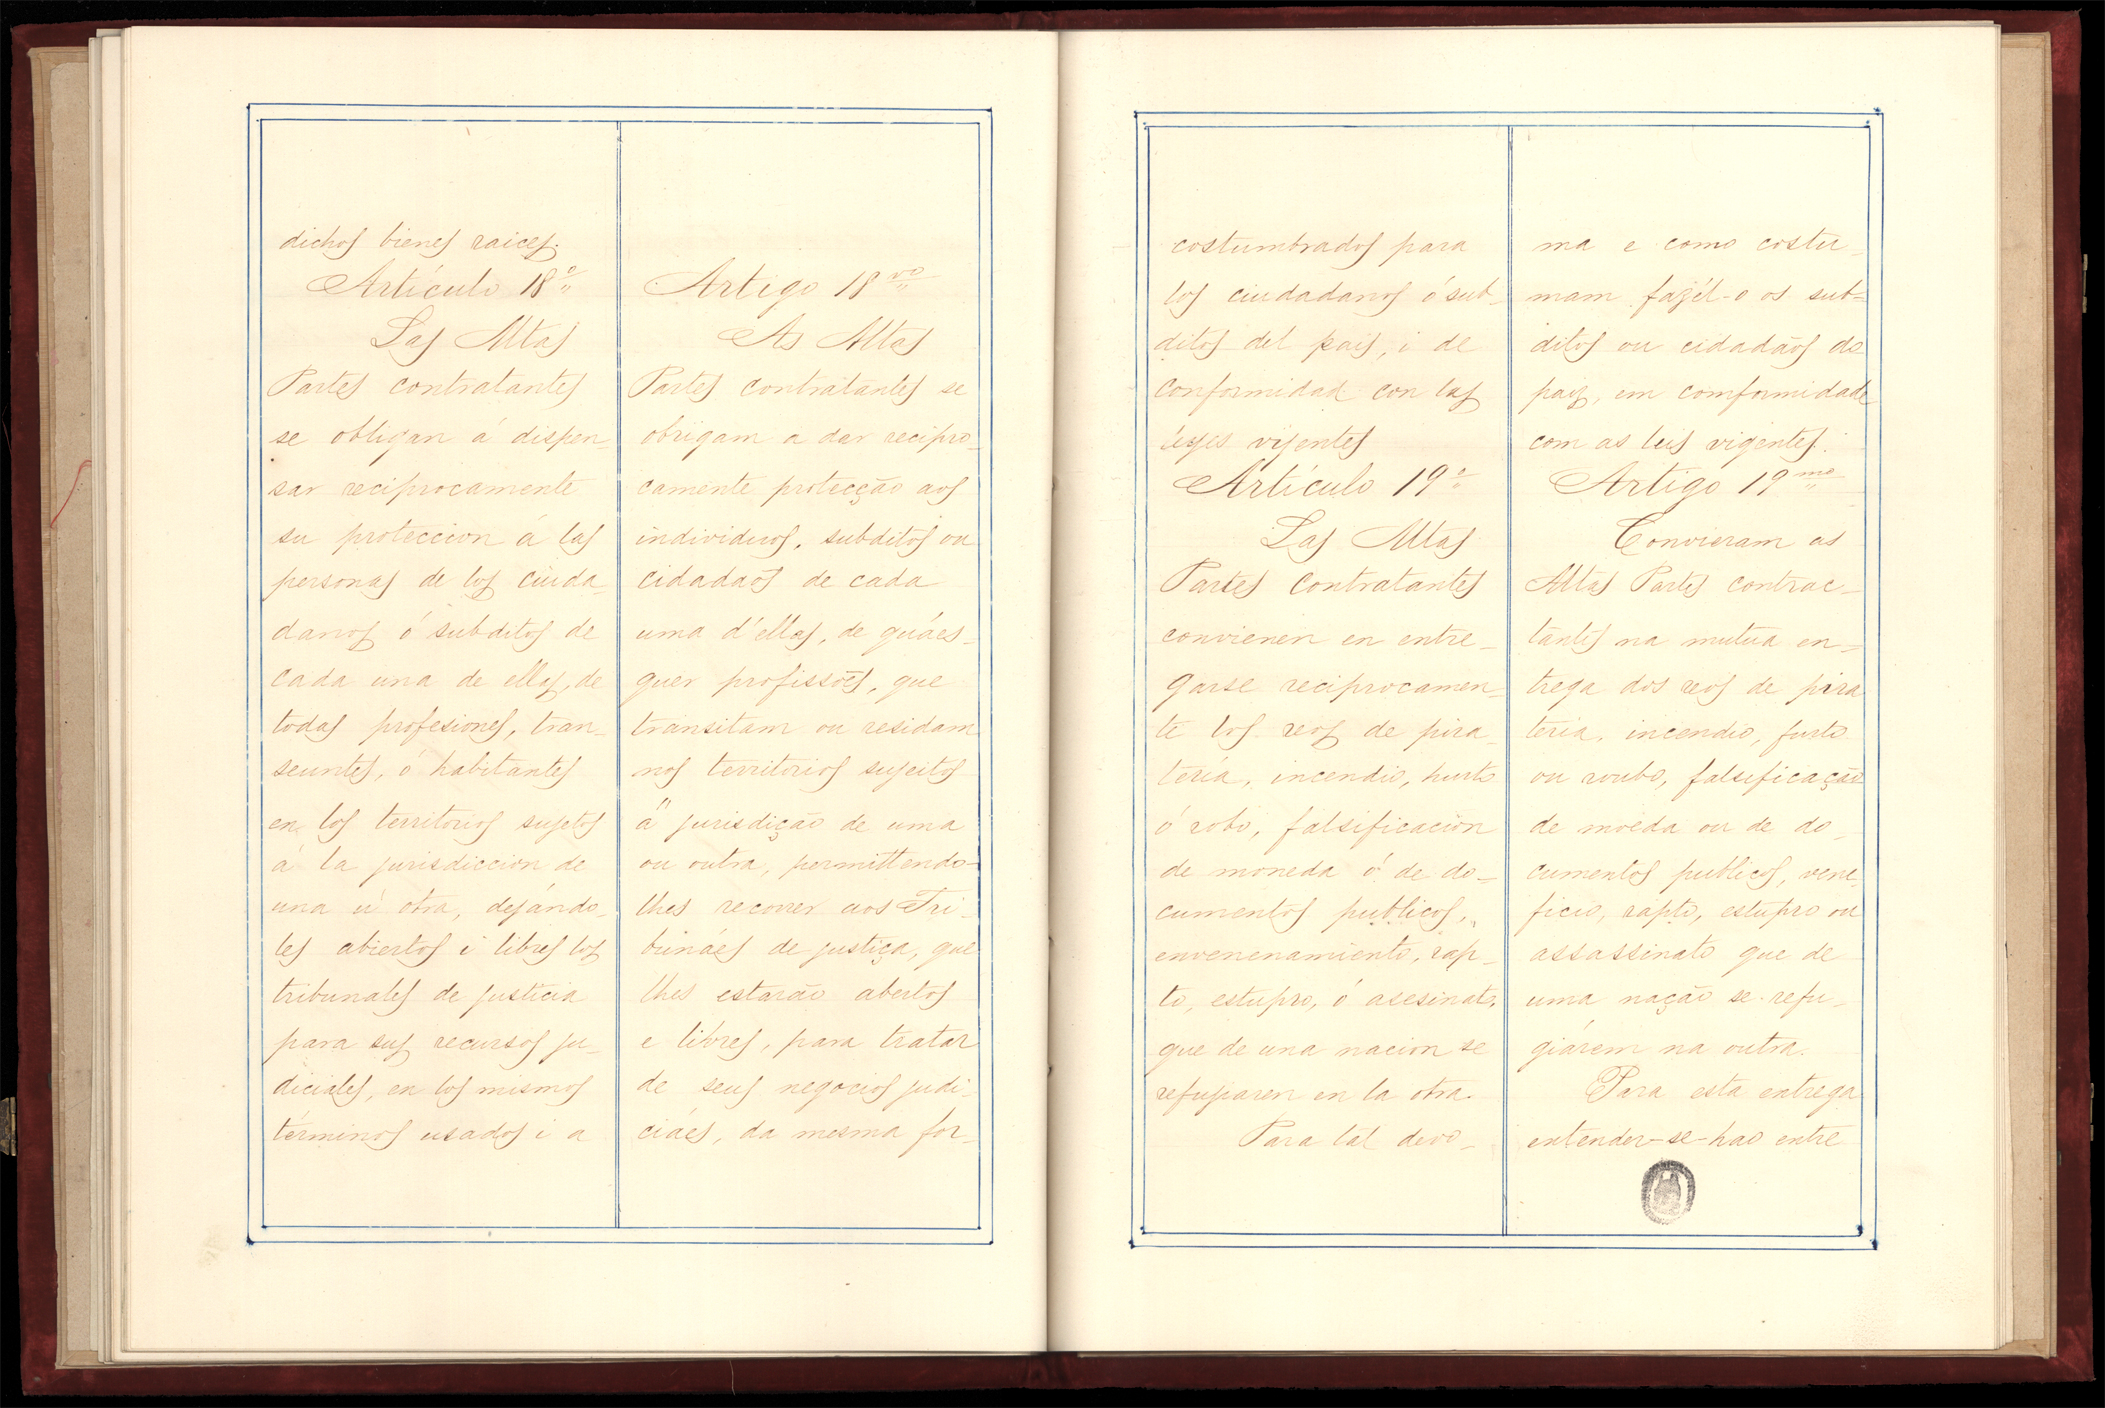 dichos bienes raices.
Artículo 18º
Las Altas
Partes contratantes
se obligan á dispen-
sar reciprocamente
su proteccion á las
personas de los ciuda-
danos ó subditos de
cada una de ellas, de
todas profesiones, tran-
seuntes, ó habitantes
en los territorios sujetos
á la jurisdiccion de
una ú otra, dejándo-
les abiertos i libres los
tribunales de justicia
para sus recursos ju-
diciales, en los mismos
términos usados i a
Artigo 18vo
As Altas
Partes contratantes se
obrigam a dar recipro-
camente protecção aos
individuos, subditos ou
cidadaõs de cada
uma d'ellas, de quáes-
quer profissões, que
transitam ou residam
nos territorios sujeitos
á jurisdição de uma
ou outra, permittendo-
lhes recorrer aos Tri-
bunáes de justiça, que
lhes estarão abertos
e libres, para tratar
de seus negocios judi-
ciáes, da mesma for-
costumbrados para
los ciudadanos ó sub-
ditos del pais, i de
conformidad con las
leyes vijentes
Artículo 19º
Las Altas
Partes Contratantes
convienen en entre-
garse reciprocamen-
te los reos de pira-
teria, incendio, hurto
ó robo, falsificacion
de moneda ó de do-
cumentos publicos,
envenenamiento, rap-
to, estupro, ó asesinato,
que de una nacion se
refujiaren en la otra.
Para tal devo-
ma e como costu-
mam fazêl-o os sub-
ditos ou cidadãos do
paiz, em comformidade
com as leis vigentes.
Artigo 19mo
Convieram as
Altas Partes contrac-
tantes na mutua en-
trega dos reos de pira
teria, incendio, furto
ou roubo, falsificação
de moeda ou de do-
cumentos publicos, vene-
ficio, rapto, estupro ou
assassinato que de
uma nação se refu-
giárem na outra.
Para esta entrega
entender-se-hao entre